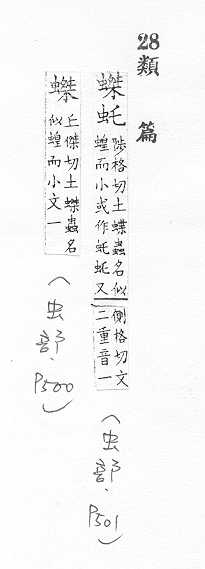 28類 篇
虴
陟格切土蟲名似
蝗而小或作虴虴又
側格切文
二重音一
(虫部.P501)
丘傑切土蟲名
似蝗而小文一
(虫部.P500)